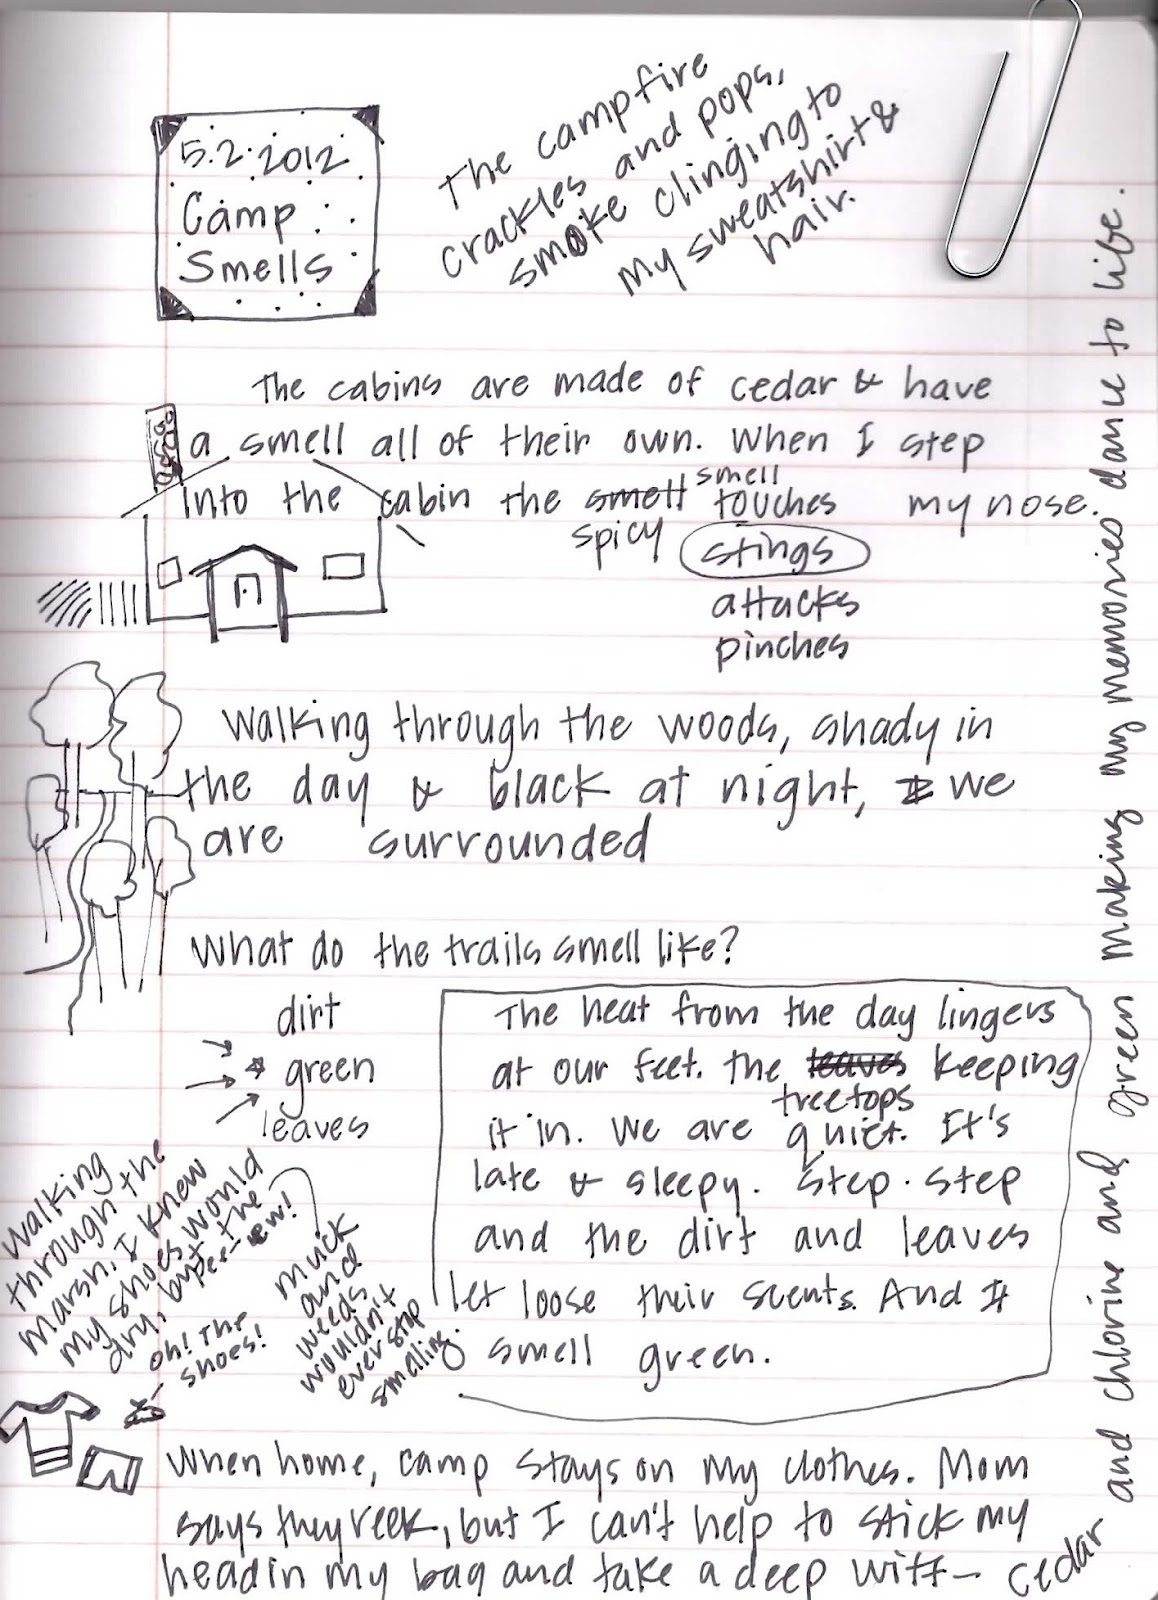 5.2.2012
Camp
Smells
The campfire
crackles and pops,
smoke clinging to
my sweatshirt &
hair.
The cabins are made of cedar & have
a smell all of their own. When I step
into the cabin the smell smell touches my nose.
spicy stings
attacks
pinches
Walking through the woods, shady in
the day & black at night, I we
are surrounded
What do the trails smell like?
dirt
green
leaves
The heat from the day lingers
at our feet. The leaves keeping
treetops
it in. We are quiet. It's
late & sleepy. Step. Step
and the dirt and leaves
let loose their scents. And It
smell green.
Walking
through the
marsh, I knew
my shoes would
dry, but the
eww!
oh! The
shoes!
muck
and
weeds
wouldn't
ever stop
smaling.
When home, camp stays on my clothes. Mom
says they reek, but I can't help to stick my
head in my bag and take a deep wiff - cedar
and chlorine and green making my memories dance to life.